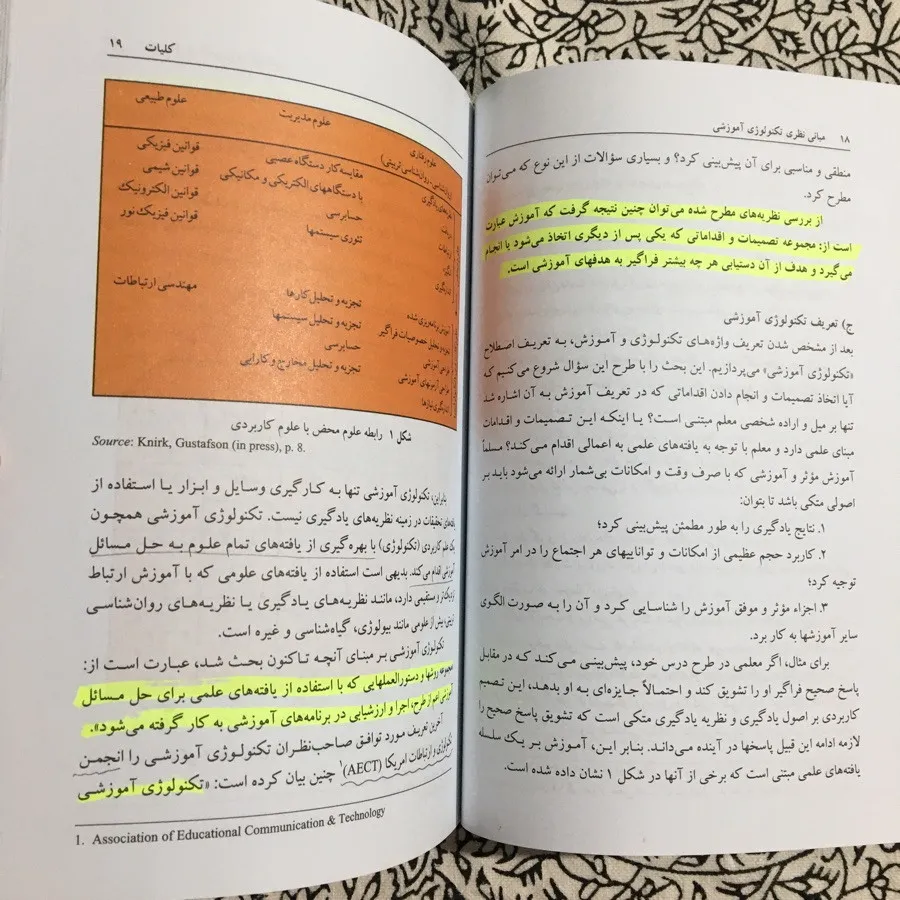 ۱۸ مبانی نظری تکنولوژی آموزشی
منطقی و مناسبی برای آن پیش‌بینی کرد؟ و بسیاری سؤالات از این نوع که می‌توان
مطرح کرد.
از بررسی نظریه‌های مطرح شده می‌توان چنین نتیجه گرفت که آموزش عبارت
است از: مجموعه تصمیمات و اقداماتی که یکی پس از دیگری اتخاذ می‌شود یا انجام
می‌گیرد و هدف از آن دستیابی هر چه بیشتر فراگیر به هدفهای آموزشی است.
ج) تعریف تکنولوژی آموزشی
بعد از مشخص شدن تعریف واژه‌های تکنولوژی و آموزش، به تعریف اصطلاح
«تکنولوژی آموزشی» می‌پردازیم. این بحث را با طرح این سؤال شروع می‌کنیم ک
آیا اتخاذ تصمیمات و انجام دادن اقداماتی که در تعریف آموزش به آن اشاره شد
تنها بر میل و اراده شخصی معلم مبتنی است؟ یا اینکه این تصمیمات و اقدامات
مبنای علمی دارد و معلم با توجه به یافته‌های علمی به اعمالی اقدام می‌کند؟ مسلماً
آموزش مؤثر و آموزشی که با صرف وقت و امکانات بی‌شمار ارائه می‌شود باید بر
اصولی متکی باشد تا بتوان:
۱. نتایج یادگیری را به طور مطمئن پیش‌بینی کرد؛
۲. کاربرد حجم عظیمی از امکانات و تواناییهای هر اجتماع را در امر آموزش
توجیه کرد؛
۳. اجزاء مؤثر و موفق آموزش را شناسایی کرد و آن را به صورت الگوی
سایر آموزشها به کار برد.
برای مثال، اگر معلمی در طرح درس خود، پیش‌بینی می‌کند که در مقابل
پاسخ صحیح فراگیر او را تشویق کند و احتمالاً جایزه‌ای به او بدهد، این تصمیم
کاربردی بر اصول یادگیری و نظریه یادگیری متکی است که تشویق پاسخ صحیح را
لازمه ادامه این قبیل پاسخها در آینده می‌داند. بنابر این، آموزش بر یک سلسله
یافته‌های علمی مبتنی است که برخی از آنها در شکل ۱ نشان داده شده است
کلیات ۱۹
علوم رفتاری
علوم مدیریت
علوم طبیعی
مقایسه کار دستگاه عصبی
با دستگاههای الکتریکی و مکانیکی
حسابرسی
تئوری سیستمها
قوانین فیزیکی
قوانین شیمی
قوانین الکترونیک
قوانین فیزیک نور
تجزیه و تحلیل کارها
تجزیه و تحلیل سیستمها
حسابرسی
تجزیه و تحلیل مخارج و کارایی
مهندسی ارتباطات
شکل ۱ رابطه علوم محض با علوم کاربردی
Source: Knirk, Gustafson (in press), p. 8.
بنابراین، تکنولوژی آموزشی تنها به کارگیری وسایل و ابزار یا استفاده از
یافته‌های تحقیقات در زمینه نظریه‌های یادگیری نیست. تکنولوژی آموزشی همچون
یک علم کاربردی (تکنولوژی) با بهره‌گیری از یافته‌های تمام علوم به حل مسائل
آموزشی اقدام می‌کند. بدیهی است استفاده از یافته‌های علومی که با آموزش ارتباط
نزدیک‌تر و مستقیمی دارد، مانند نظریه‌های یادگیری یا نظریه‌های روان‌شناسی
تربیتی، بیش از علومی مانند بیولوژی، گیاه‌شناسی و غیره است.
تکنولوژی آموزشی بر مبنای آنچه تاکنون بحث شد، عبارت است از:
مجموعه روشها و دستورالعملهایی که با استفاده از یافته‌های علمی برای حل مسائل
آموزشی اعم از طرح، اجرا و ارزشیابی در برنامه‌های آموزشی به کار گرفته می‌شود».
آخرین تعریف مورد توافق صاحب‌نظران تکنولوژی آموزشی را انجمن
تکنولوژی و ارتباطات امریکا (AECT)۱ چنین بیان کرده است: «تکنولوژی آموزشی
1. Association of Educational Communication & Technology